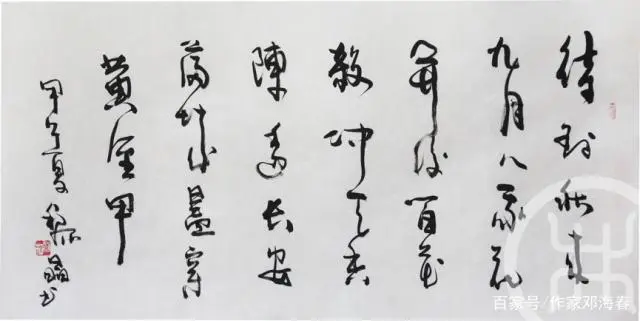 待到秋来
九月八我花
開後百花
殺冲天香
陣透长安
滿城盡穿
黄金甲
甲午夏
书
百家号/作家邓海春